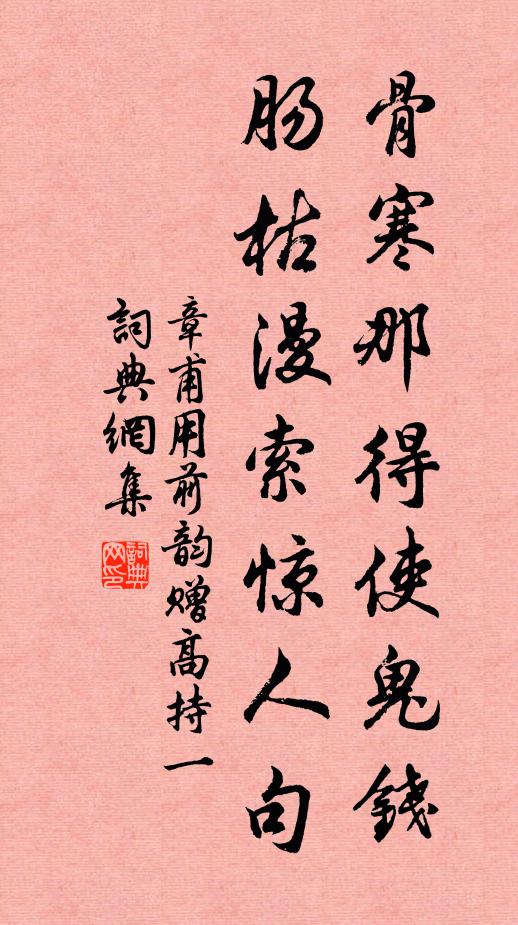 骨寒那得使鬼錢
肠枯漫索惊人句
章甫用前韵赠高持一
詞典網集
詞典網印